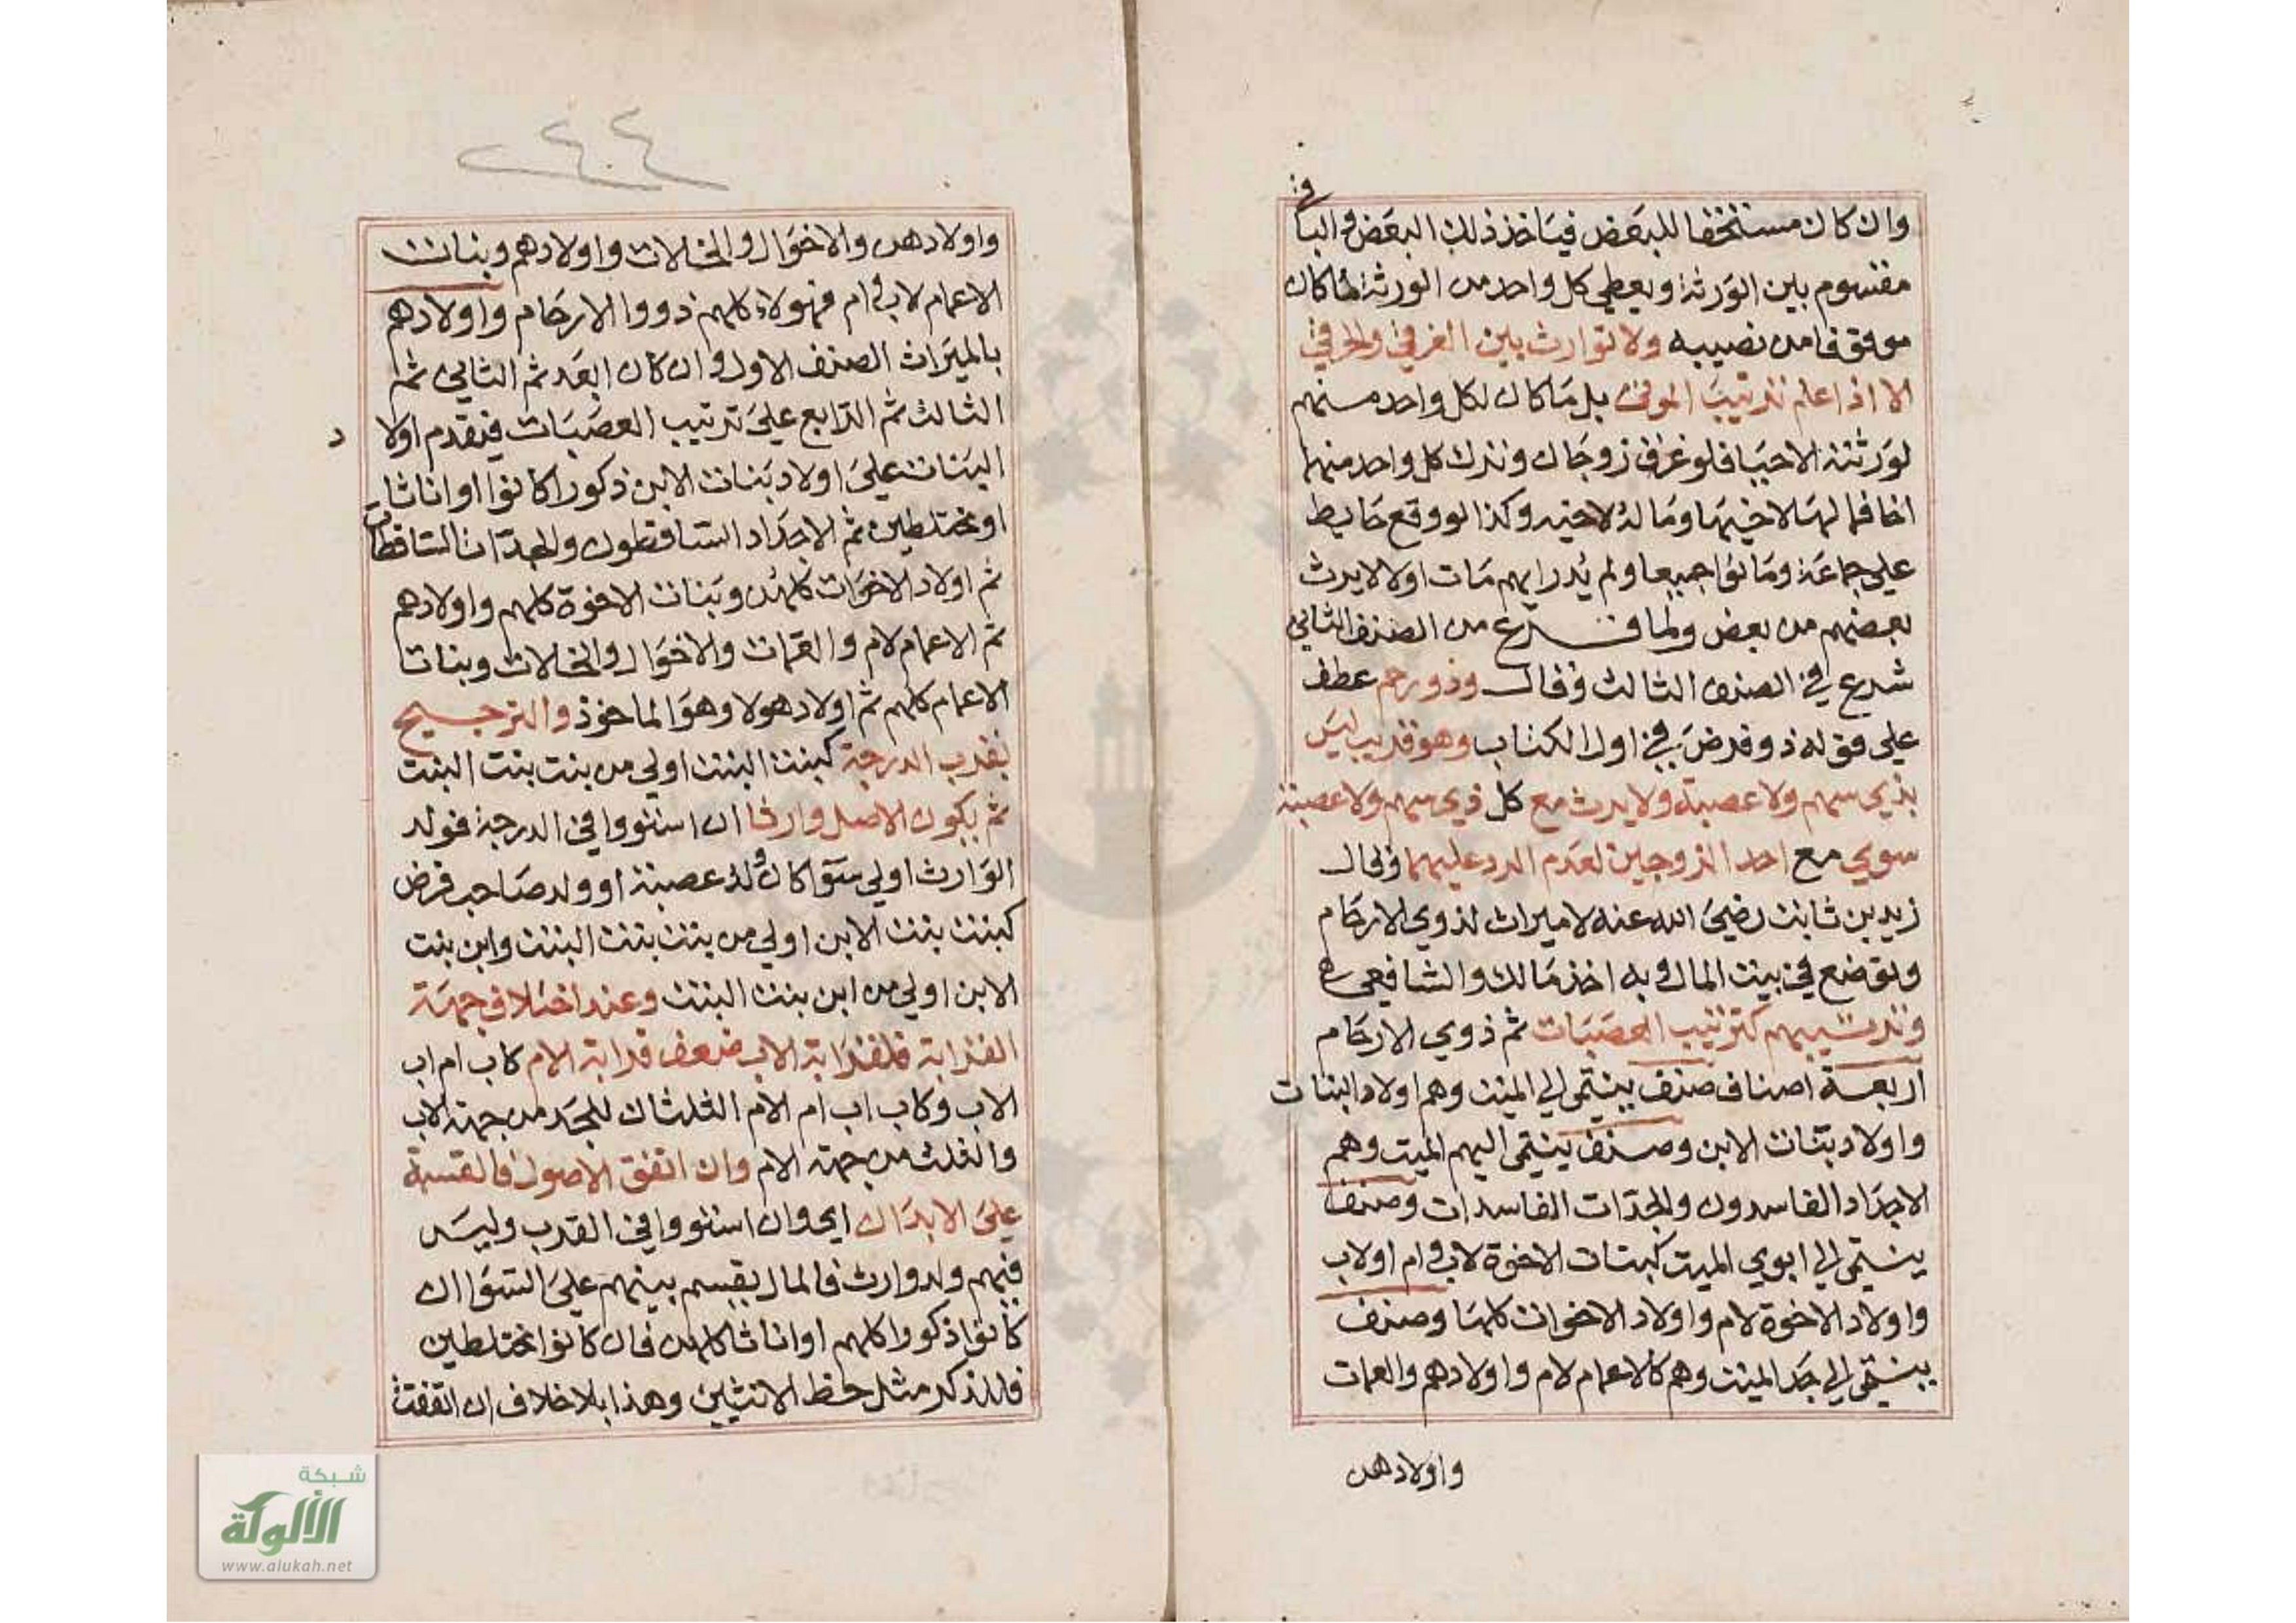 وان كان مستحقا للبعض فياخذ ذلك البعض والباقي
مقسوم بين الورثة ويعطي كل واحد من الورثة ما كان
موقوفا من نصيبه ولا توارث بين الغرقي والحرقي
الا اذا علم ترتيب الموتى بل ما كان لكل واحد منهم
لورثته الاحيا فلو غرق زوجان وترك كل واحد منهما
اخا فما لها لاخيها وما له لاخيه وكذا لو وقع حايط
علي جماعة وماتوا جميعا ولم يدر ايهم مات اولا لا يرث
بعضهم من بعض ولما فرغ من الصنف الثاني
شرع في الصنف الثالث وقال وذو رحم عطف
علي قوله ذو فرض في اول الكتاب وهو قريب ليس
بذي سهم ولا عصبة ولا يرث مع كل ذي سهم ولا عصبة
سوي مع احد الزوجين لعدم الرد عليهما وقال
زيد بن ثابت رضي الله عنه لا ميراث لذوي الارحام
ويوضع في بيت المال وبه اخذ مالك والشافعي
وترتيبهم كترتيب العصبات ثم ذوي الارحام
اربعة اصناف صنف ينتمي الي الميت وهم اولاد البنات
واولاد بنات الابن وصنف ينتمي اليهم الميت وهم
الاجداد الفاسدون والجدات الفاسدات وصنف
ينتمي الي ابوي الميت كبنات الاخوة لاب وام او لاب
واولاد الاخوة لام واولاد الاخوات كلها وصنف
ينتمي الي جد الميت وهم كالاعمام لام واولادهم والعمات
واولادهن
٤٤
واولادهن والاخوال والخالات واولادهم وبنات
الاعمام لاب وام فهولاء كلهم ذووا الارحام واولادهم
بالميراث الصنف الاول وان كان ابعد ثم الثاني ثم
الثالث ثم الرابع علي ترتيب العصبات فيقدم اولاد
البنات علي اولاد بنات الابن ذكورا كانوا او اناثا
او مختلطين ثم الاجداد الساقطون والجدات الساقطات
ثم اولاد الاخوات كلهن وبنات الاخوة كلهم واولادهم
ثم الاعمام لام والعمات والاخوال والخالات وبنات
الاعمام كلهم ثم اولاد هولا وهو الماخوذ والترجيح
بقرب الدرجة كبنت البنت اولي من بنت بنت البنت
ثم بكون الاصل وارثا ان استووا في الدرجة فولد
الوارث اولي سوا كان ولد عصبة او ولد صاحب فرض
كبنت بنت الابن اولي من بنت بنت البنت وابن بنت
الابن اولي من ابن بنت البنت وعند اختلاف جهة
القرابة فلقرابة الاب ضعف قرابة الام كاب ام اب
الاب وكاب اب ام الام الثلثان للجد من جهة الاب
والثلث من جهة الام وان اتفق الاصول فالقسمة
علي الابدان اي وان استووا في القرب وليس
فيهم ولد وارث فالمال يقسم بينهم علي السوا ان
كانوا ذكورا كلهم او اناثا كلهن فان كانوا مختلطين
فللذكر مثل حظ الانثيين وهذا بلا خلاف ان اتفقت
شبكة
الألوكة
www.alukah.net